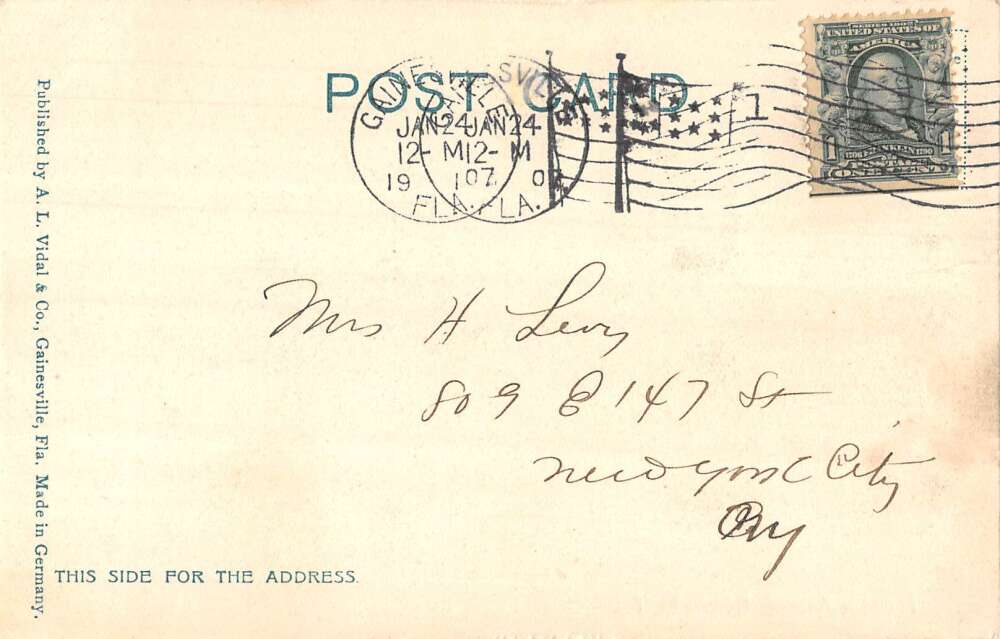 POST CARD
SERIES 1902
UNITED STATES OF
AMERICA
FRANKLIN
ONE CENT
1 1
GAINESVILLE
JAN 24
12-M
1907
FLA.
GAINESVILLE
JAN 24
12-M
1907
FLA.
1
Mrs H Levy
809 E 147 St
New York City
NY
THIS SIDE FOR THE ADDRESS.
Published by A. L. Vidal & Co., Gainesville, Fla. Made in Germany.